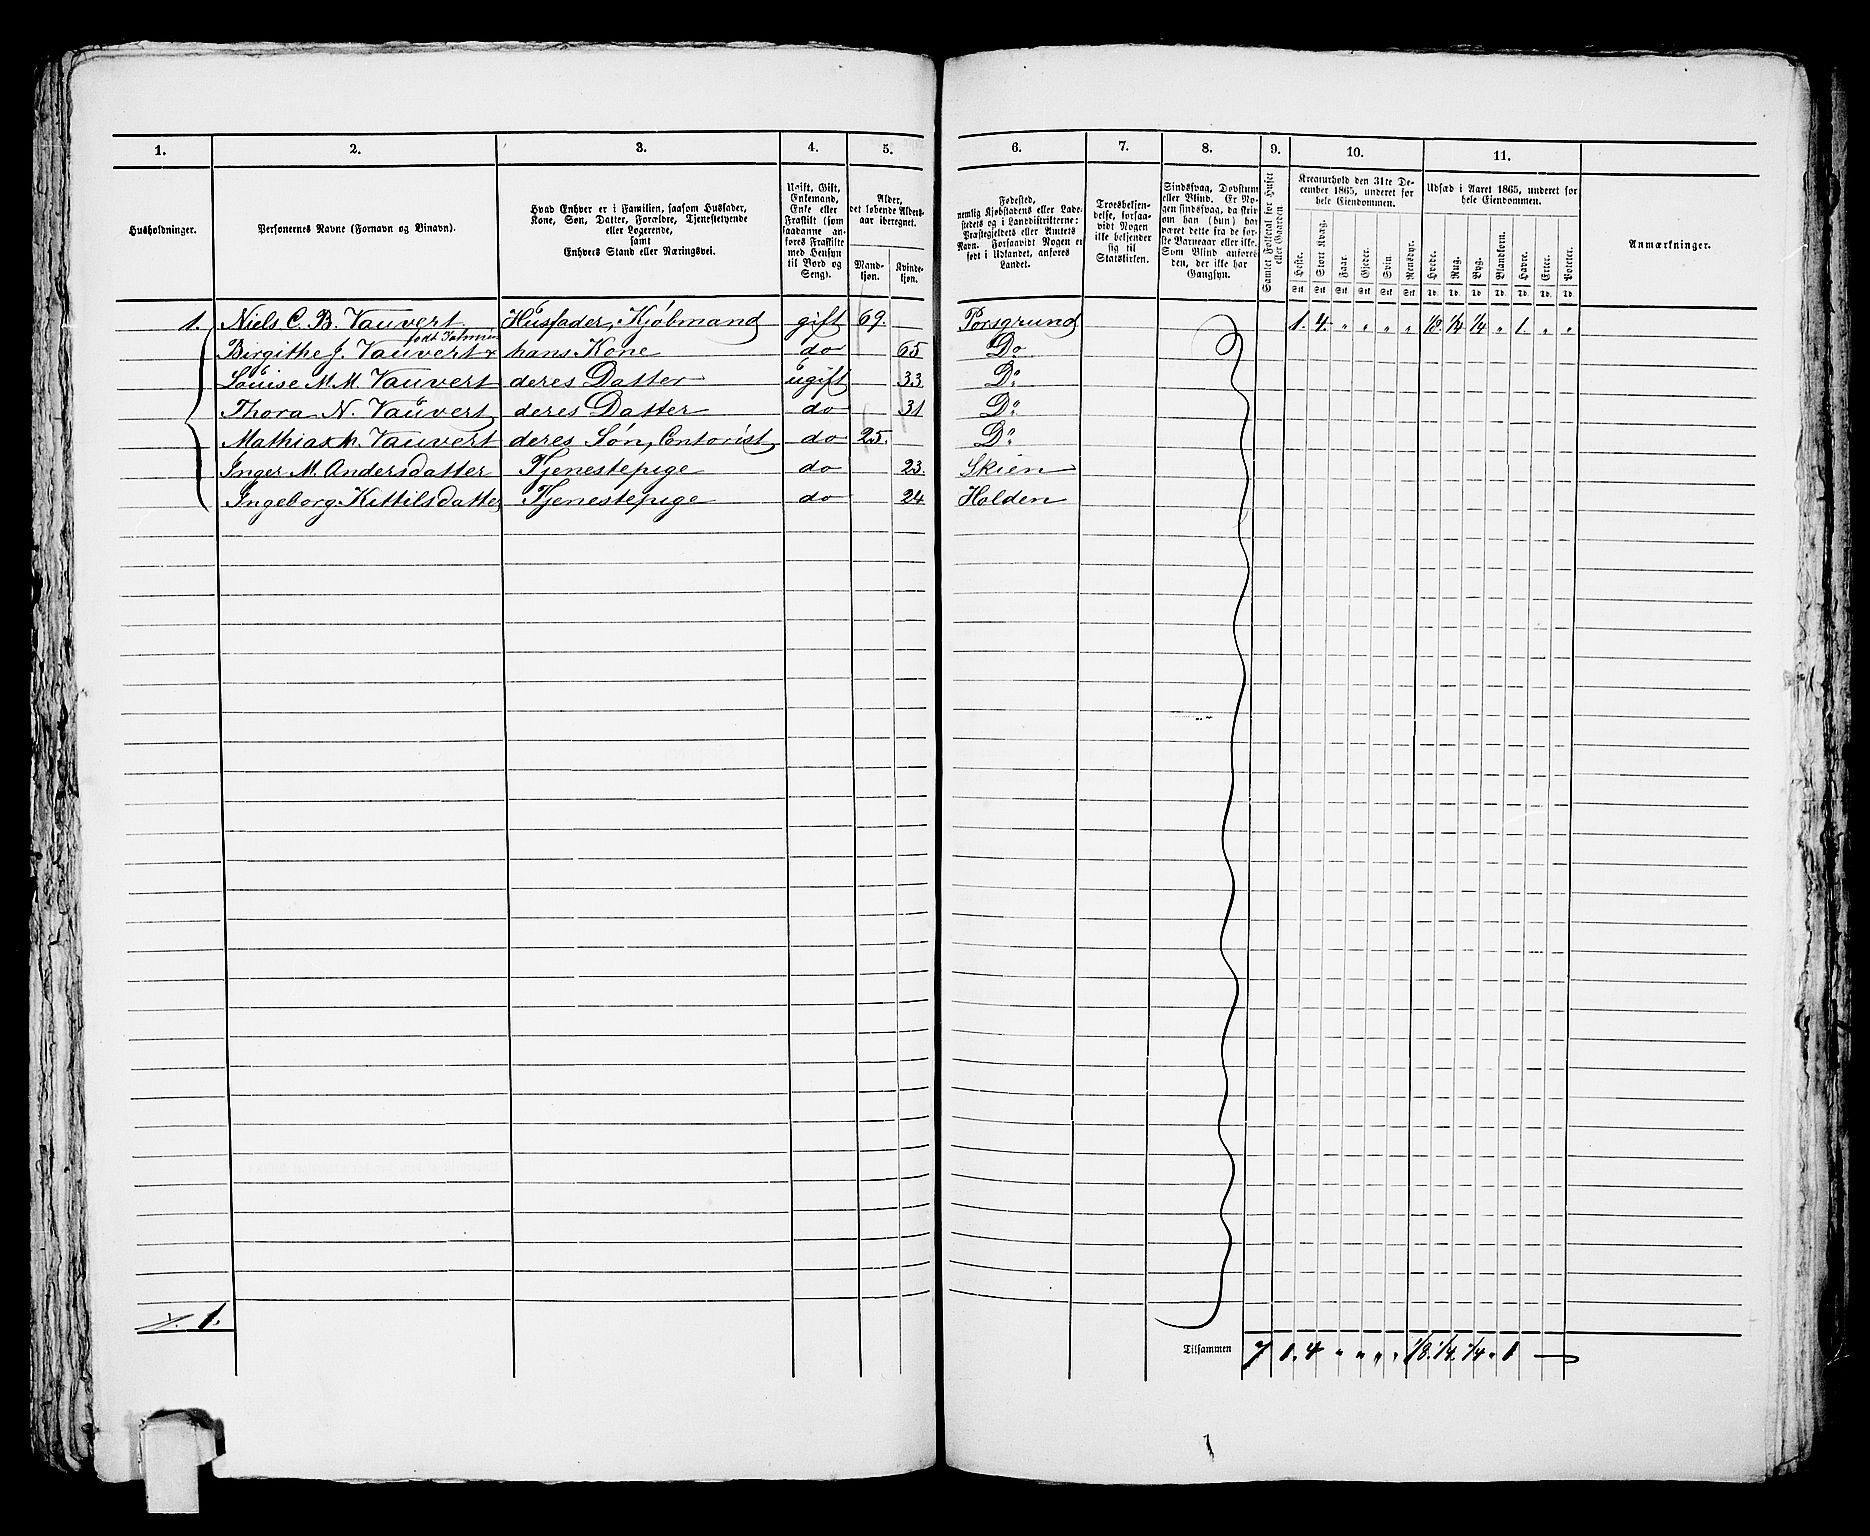 1. 2. 3. 4. 5. 6. 7. 8. 9. 10. 11.
Husholdninger.
Personernes Navne (Fornavn og Binavn).
Hvad Enhver er i Familien, saasom Husfader,
Kone, Søn, Datter, Forældre, Tjenestetyende
eller Logerende,
samt
Enhvers Stand eller Næringsvei.
Ugift, Gift,
Enkemand,
Enke eller
Fraskilt (som
saadanne an-
føres Fraskilte
med Hensyn
til Bord og
Seng).
Alder,
det løbende Alders-
aar iberegnet.
Mand-
kjøn.
Kvinde-
kjøn.
Fødested,
nemlig Kjøbstadens eller Lade-
stedets og i Landdistrikterne:
Præstegjeldets eller Amtets
Navn. Forsaavidt Nogen er
født i Udlandet, anføres
Landet.
Troesbekjen-
delse, forsaa-
vidt Nogen
ikke bekjender
sig til
Statskirken.
Sindssvag, Døvstum
eller Blind. Er No-
gen sindssvag, da skriv
om han (hun) har
været dette fra de før-
ste Barneaar eller ikke.
Som Blind anføres
den, der ikke har
Gangsyn.
Samlet Folketal for Huset
eller Gaarden.
Kreaturhold den 31te De-
cember 1865, underet for
hele Eiendommen.
Heste. Stort Kvæg. Faar. Gjeder. Svin. Rensdyr.
Stk Stk Stk Stk Stk Stk
Udsæd i Aaret 1865, underet for
hele Eiendommen.
Hvede. Rug. Byg. Blandkorn. Havre. Erter. Poteter.
Td. Td. Td. Td. Td. Td. Td.
Anmærkninger.
1. Niels C. B. Vauvert Husfader, Kjøbmand gift 69. Porsgrund 1. 4. " " " " 1/8. 1/4 1/4 " 1. " "
født
Birgithe J. Vauvert hans Kone do 65 Do
Louise M. M. Vauvert deres Datter ugift 33 Do
Thora N. Vauvert deres Datter do 31 Do
Mathias M. Vauvert deres Søn, Contorist do 25. Do
Inger M. Andersdatter Tjenestepige do 23. Skien
Ingeborg Kittilsdatter Tjenestepige do 24 Holden
1.
Tilsammen 7 1. 4 " " " " 1/8. 1/4. 1/4 " 1 —